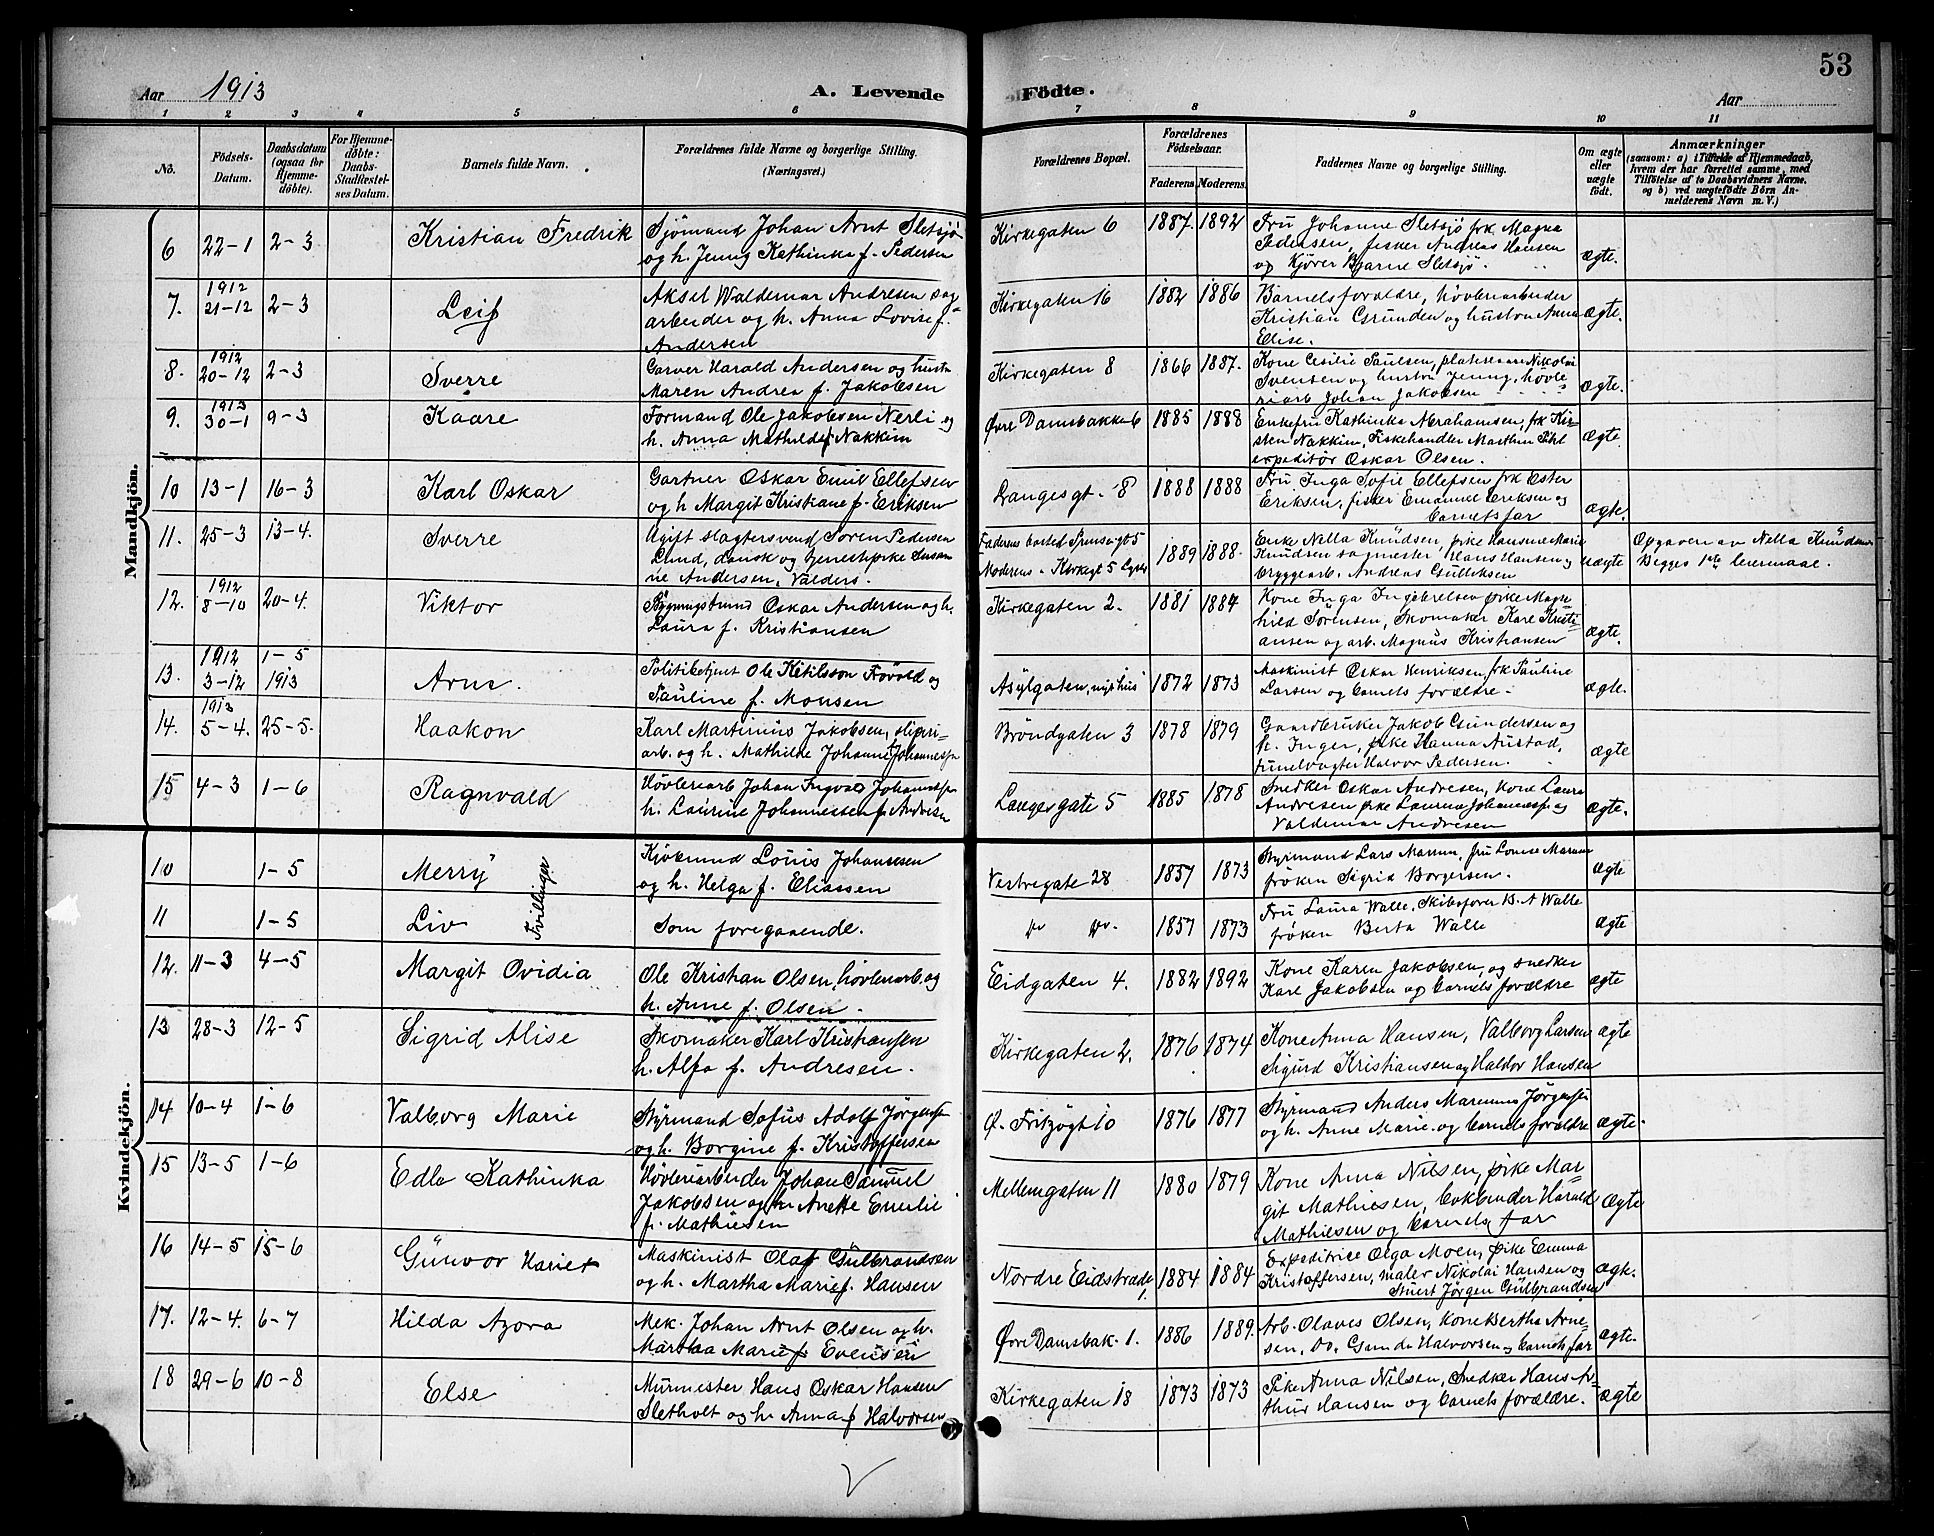 53
Aar 1913
A. Levende
Födte.
Aar
1 2 3 4 5 6 7 8 9 10 11
No.
Födsels-Datum.
Daabsdatum (ogsaa for Hjemmedöbte).
For Hjemmedöbte: Daabs-Stadfestelses Datum.
Barnets fulde Navn.
Forældrenes fulde Navne og borgerlige Stilling.
(Næringsvei.)
Forældrenes Bopæl.
Forældrenes Födselsaar.
Faderens. Moderens.
Faddernes Navne og borgerlige Stilling.
Om ægte eller uægte födt.
Anmærkninger
(saasom: a) i Tilfælde af Hjemmedaab, hvem der har forrettet samme, med Tilföielse af to Daabsvidners Navne. og b) ved uægtefödte Börn Anmelderens Navn m. V.)
Mandkjön.
6 22-1 2-3 Kristian Fredrik
Sjömand Johan Arnt Sletsjö
og h. Jenny Kathinka f. Pedersen
Kirkegaten 6 1887. 1892
Fru Johanne Sletsjö frk Magna
Pedersen, fisker Andreas Hansen
og Kjörer Bjarne Sletsjö. ægte.
7. 1912 21-12 2-3 Leif
Aksel Waldemar Andresen sag
arbeider og h. Anna Lovise f.
Andersen
Kirkegaten 16 1882 1886
Barnets forældre, hövleriarbeider
Kristian Grunden og hustru Anna
Elise. ægte.
8. 1912 20-12 2-3 Sverre
Garver Harald Andersen og hustr
Maren Andrea f. Jakobsen
Kirkegaten 8 1866 1887.
Kone Cesilie Paulsen, pladearb Nikolai
Svensen og hustru Jenny, hövle
riarb Johan Jakobsen ægte.
9. 1913 30-1 9-3 Kaare
Formand Ole Jakobsen Nerli og
h. Anna Mathilde f Nakkim
Øvre Damsbakken 6 1885 1888
Enkefru Kathinka Abrahamsen, frk Kir
sten Nakkim, Fiskehandler Marthin Pihl
expeditör Oskar Olsen. ægte.
10 13-1 16-3 Karl Oskar
Gartner Oskar Emil Ellefsen
og h Margit Kristiane f. Eriksen
Langesgt. 8 1888 1888
Fru Inga Sofie Ellefsen frk Ester
Eriksen, fisker Emanuel Eriksen og
barnets far ægte.
11. 25-3 13-4. Sverre
Ugift slagtersvend Sören Pedersen
Lund, dansk og tjenestepike Susan
ne Andersen, Valders.
Faderens bosted
Moderens - Kirkegt 5 1889 1888.
Enke Nella Knudsen, pike Hansine Marie
Knudsen sagmester Hans Hansen og
bryggearb. Andreas Gulliksen uægte
Opgaven av Nella Knudsen
Begges 1ste leiermaal.
12. 1912 8-10 20-4. Viktor
Bygningstömd Oskar Andersen og h.
Laura f. Kristiansen
Kirkegaten 2. 1881 1884
Kone Inga Ingebretsen pike Magn
hild Sörensen, Skomaker Karl Kristi
ansen og arb. Magnus Kristiansen ægte.
13. 1912 3-12 1-5 1913 Arne.
Politibetjent Ole Ketilsson Frövold og
Pauline f. Monsen
Asylgaten, nyt hus 1872 1873
Maskinist Oskar Henriksen, frk Pauline
Larsen og barnets forældre. ægte.
14. 1913 5-4. 25-5. Haakon
Karl Martinius Jakobsen, sliperi
arb. og h. Mathilde Johanne f Johannessen
Bröndgaten 3 1878 1879
Gaardbruker Jakob Gundersen og
h. Inger, pike Hanna Austad,
tunelvagter Halvor Pedersen. ægte
15 4-3 1-6 Ragnvald
Hövleriarb Johan Ingvar Johannessen
h. Laurine Johannessen f. Andresen
Langesgate 5 1885 1878
Snedker Oskar Andresen, Kone Laura
Andresen pike Laurina Johannessen og
Valdemar Andresen ægte.
Kvindekjön.
10 1-5 Merry
Tvillinger
Louis Johannesen
og h. Helga f. Eliassen
Vestregate 28 1857 1873
Styrmand Lars Marum, fru Louise Marum
fröken Sigrid Borgersen. ægte
11 1-5 Liv Som foregaaende.
Do Do. 1857 1873
Fru Laura Walle, Skibsförer B. A Walle
fröken Berta Walle ægte
12. 11-3 4-5 Margit Ovidia
Ole Kristian Olsen, hövleriarb. og
h. Anne f. Olsen.
Eidgaten 4. 1882 1892
Kone Karen Jakobsen, og snedker
Karl Jakobsen og barnets forældre ægte
13 28-3 12-5 Sigrid Alise
Skomaker Karl Kristiansen
h. Alfa f. Andresen.
Kirkegaten 2. 1876 1874
Kone Anna Hansen, Valborg Larsen
Sigurd Kristiansen og Haldor Hansen ægte
14 10-4 1-6 Valborg Marie
Styrmand Sofus Adolf Jörgensen
og h. Borgine f. Kristoffersen
Ø. Fritzögt 10 1876 1877
Styrmand Anders Marenius Jörgensen
og h. Anne Marie og barnets forældre ægte.
15 13-5 1-6 Edle Kathinka
Hövleriarbeider Johan Samuel
Jakobsen og h. Anette Emelie
f. Mathiesen
Mellemgaten 11 1880 1879
Kone Anna Nilsen, pike Mar
git Mathiesen, bokbinder Harald
Mathiesen og barnets far ægte
16 14-5 15-6 Gunvor Hariet
Maskinist Olaf Gulbrandsen
og h. Martha Marie f. Hansen
Nordre Eidstræde, 1884 1884
Expeditrice Olga Moen, pike Emma
Kristoffersen, maler Nikolai Hansen og
Stuert Jörgen Gulbrandsen ægte.
17. 12-4. 6-7 Hilda Azora
Mek. Johan Arnt Olsen og h.
Martha Marie f. Evensen
Øvre Damsbak. 1. 1886 1889.
Arb. Olaves Olsen, Kone Bertha Arne
sen, Do. Halvorsen og barnets far ægte.
18 29-6 10-8 Else
Murmester Hans Oskar Hansen
Sletholt og h. Anna f Halvorsen
Kirkegaten 18 1873 1873
Pike Anna Nilsen, Snedker Hans Ar
thur Hansen og barnets forældre. ægte